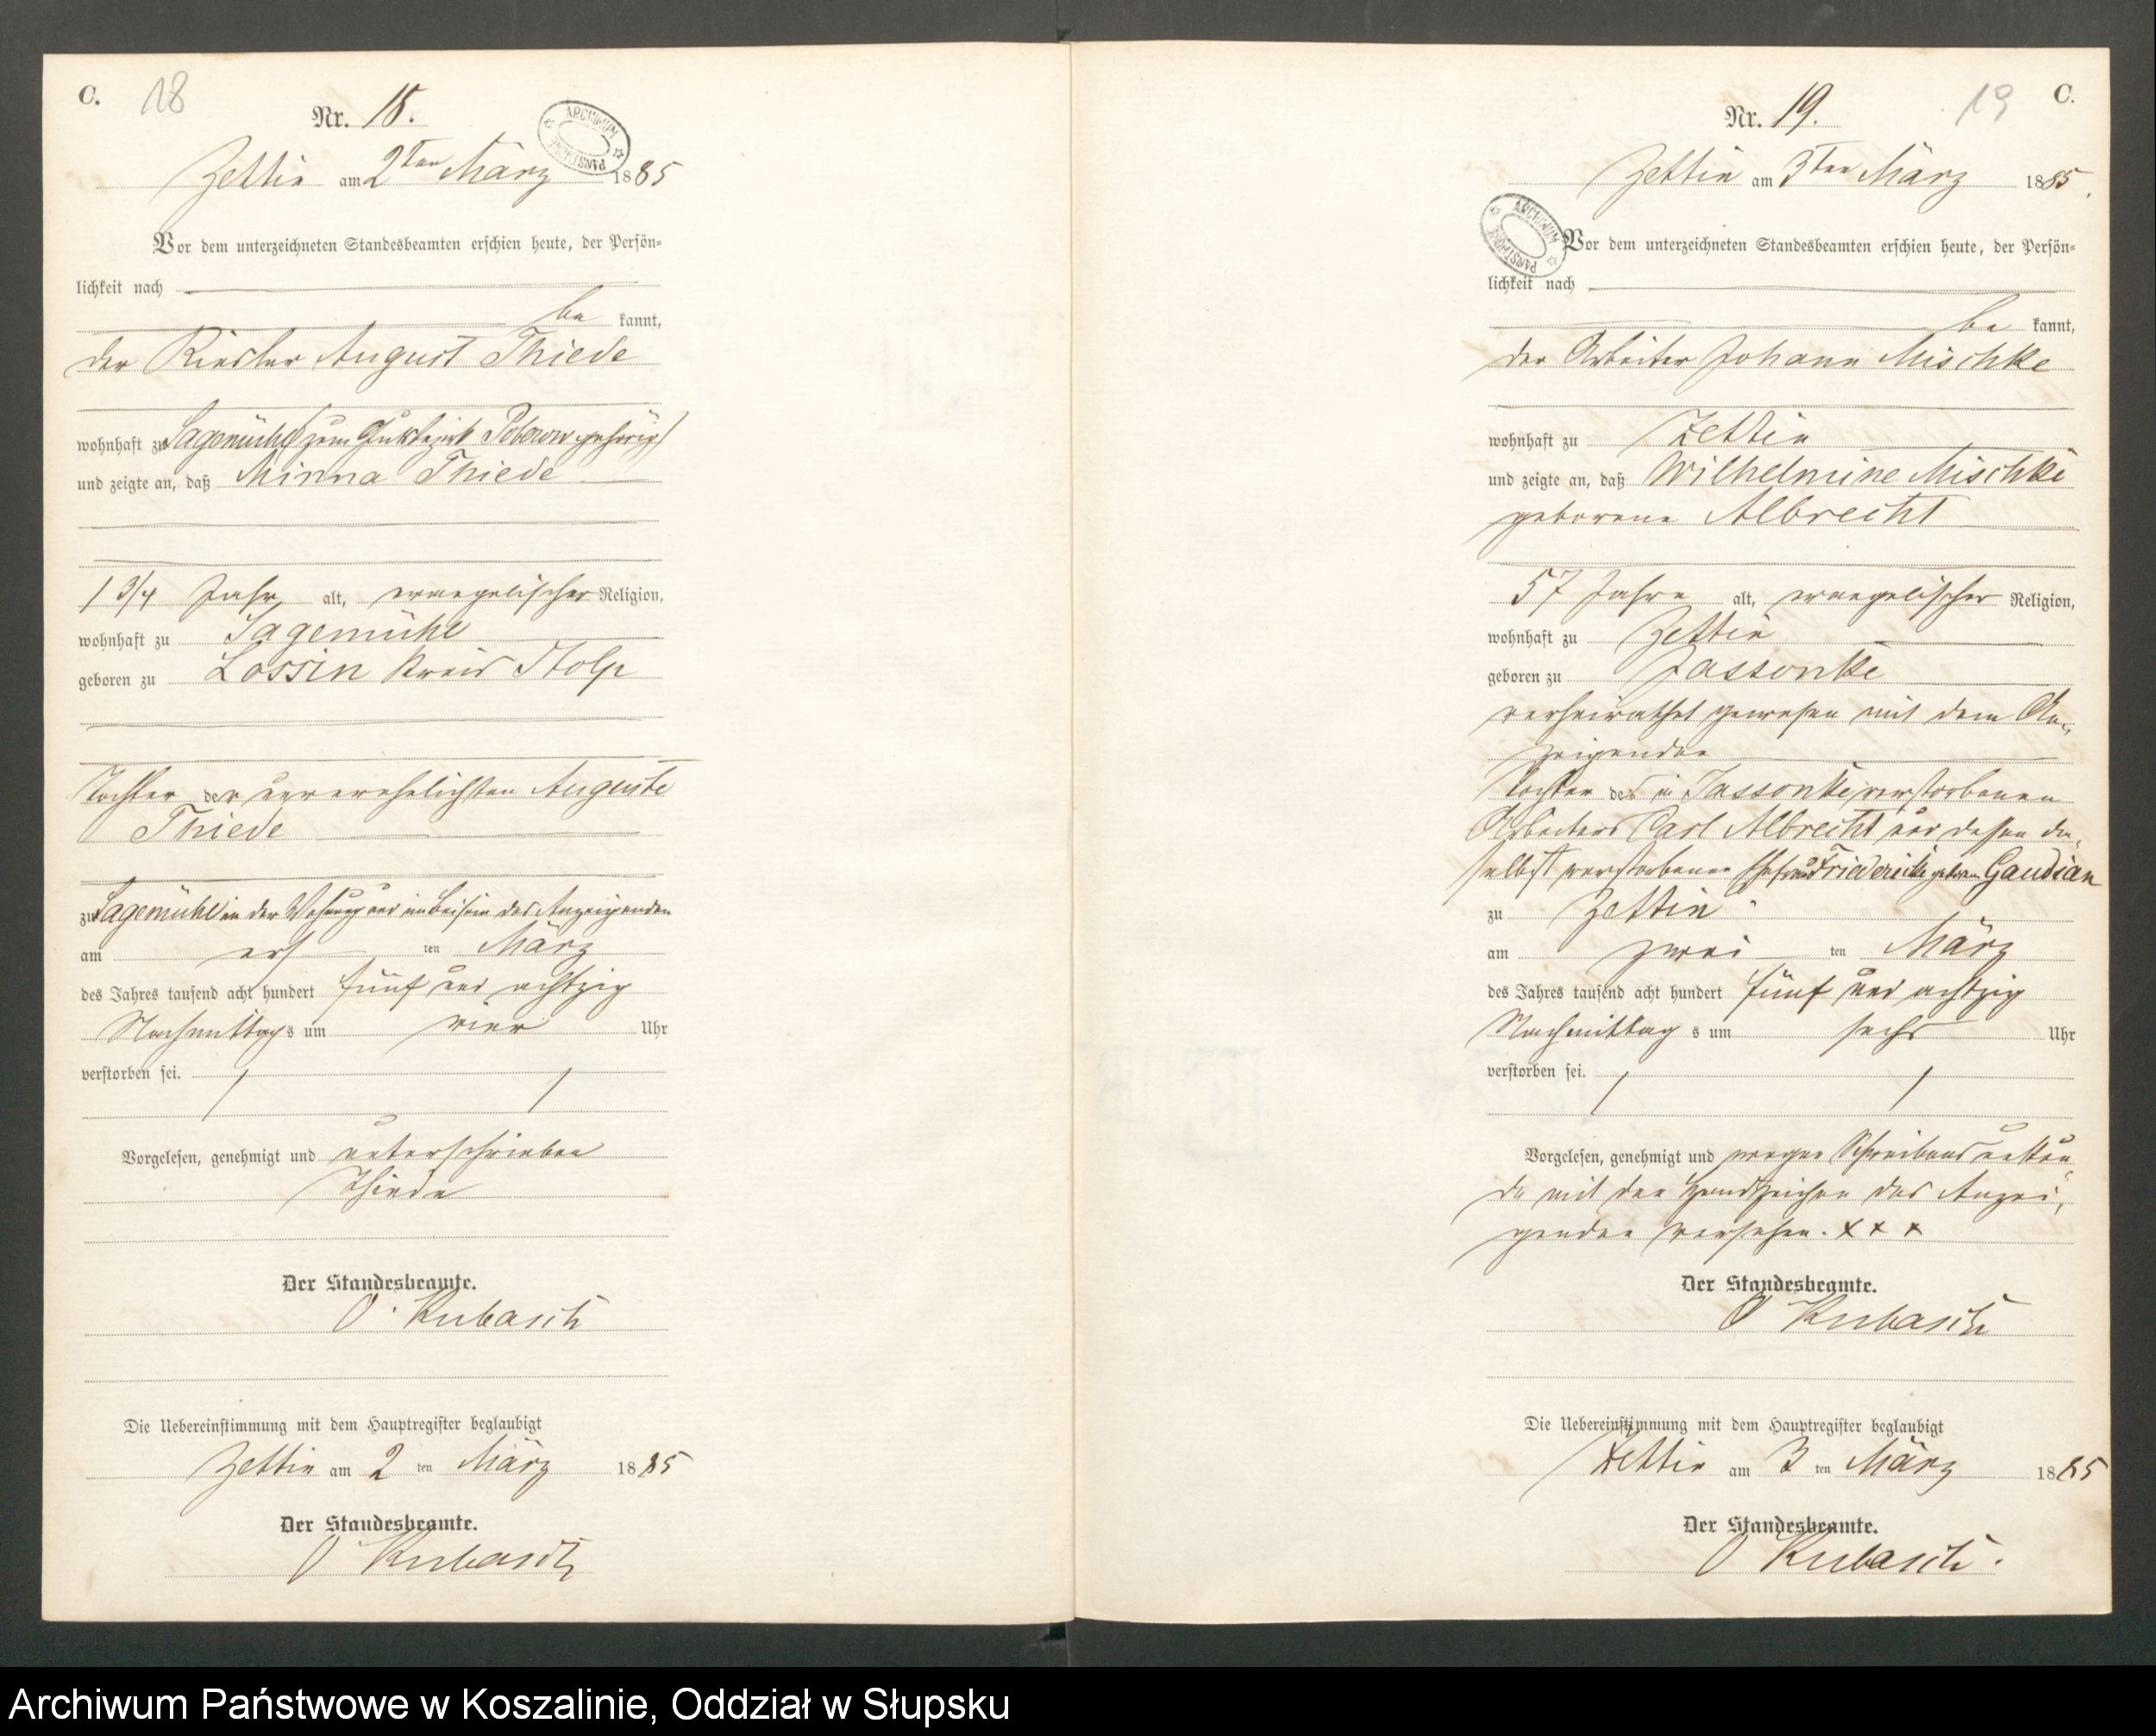 C. 18
Nr. 18.
ARCHIWUM PAŃSTWOWE
Zettin am 2ten März 1885
Vor dem unterzeichneten Standesbeamten erschien heute, der Persön-
lichkeit nach
be kannt,
der August Thiede
wohnhaft zu Sagemühle (zum Gutsbezirk Poberow gehörig)
und zeigte an, daß Minna Thiede
1 3/4 Jahr alt, evangelischer Religion,
wohnhaft zu Sagemühle
geboren zu Lossin Kreis Stolp
Tochter der unverehelichten Auguste
Thiede
zu Sagemühle in der Wohnung und im Beisein des Anzeigenden
am ers ten März
des Jahres tausend acht hundert fünf und achtzig
Nachmittags um vier Uhr
verstorben sei.
Vorgelesen, genehmigt und unterschrieben
Thiede
Der Standesbeamte.
O. Kubasch
Die Uebereinstimmung mit dem Hauptregister beglaubigt
Zettin am 2 ten März 1885
Der Standesbeamte.
O Kubasch
19 C.
Nr. 19.
Zettin am 3ten März 1885.
ARCHIWUM PAŃSTWOWE
Vor dem unterzeichneten Standesbeamten erschien heute, der Persön-
lichkeit nach
be kannt,
der Arbeiter Johann Mischke
wohnhaft zu Zettin
und zeigte an, daß Wilhelmine Mischke
geborene Albrecht
57 Jahre alt, evangelischer Religion,
wohnhaft zu Zettin
geboren zu Jassonke
verheirathet gewesen mit dem An-
zeigenden
Tochter des in Jassonke verstorbenen
Arbeiters Carl Albrecht und dessen da-
selbst verstorbenen Ehefrau Friederike geboren Gaudian
zu Zettin
am zwei ten März
des Jahres tausend acht hundert fünf und achtzig
Nachmittag s um sechs Uhr
verstorben sei.
Vorgelesen, genehmigt und wegen Schreibensunkun-
de mit den Handzeichen des Anzei-
genden versehen. x x x
Der Standesbeamte.
O Kubasch
Die Uebereinstimmung mit dem Hauptregister beglaubigt
Zettin am 3 ten März 1885
Der Standesbeamte.
O Kubasch.
Archiwum Państwowe w Koszalinie, Oddział w Słupsku